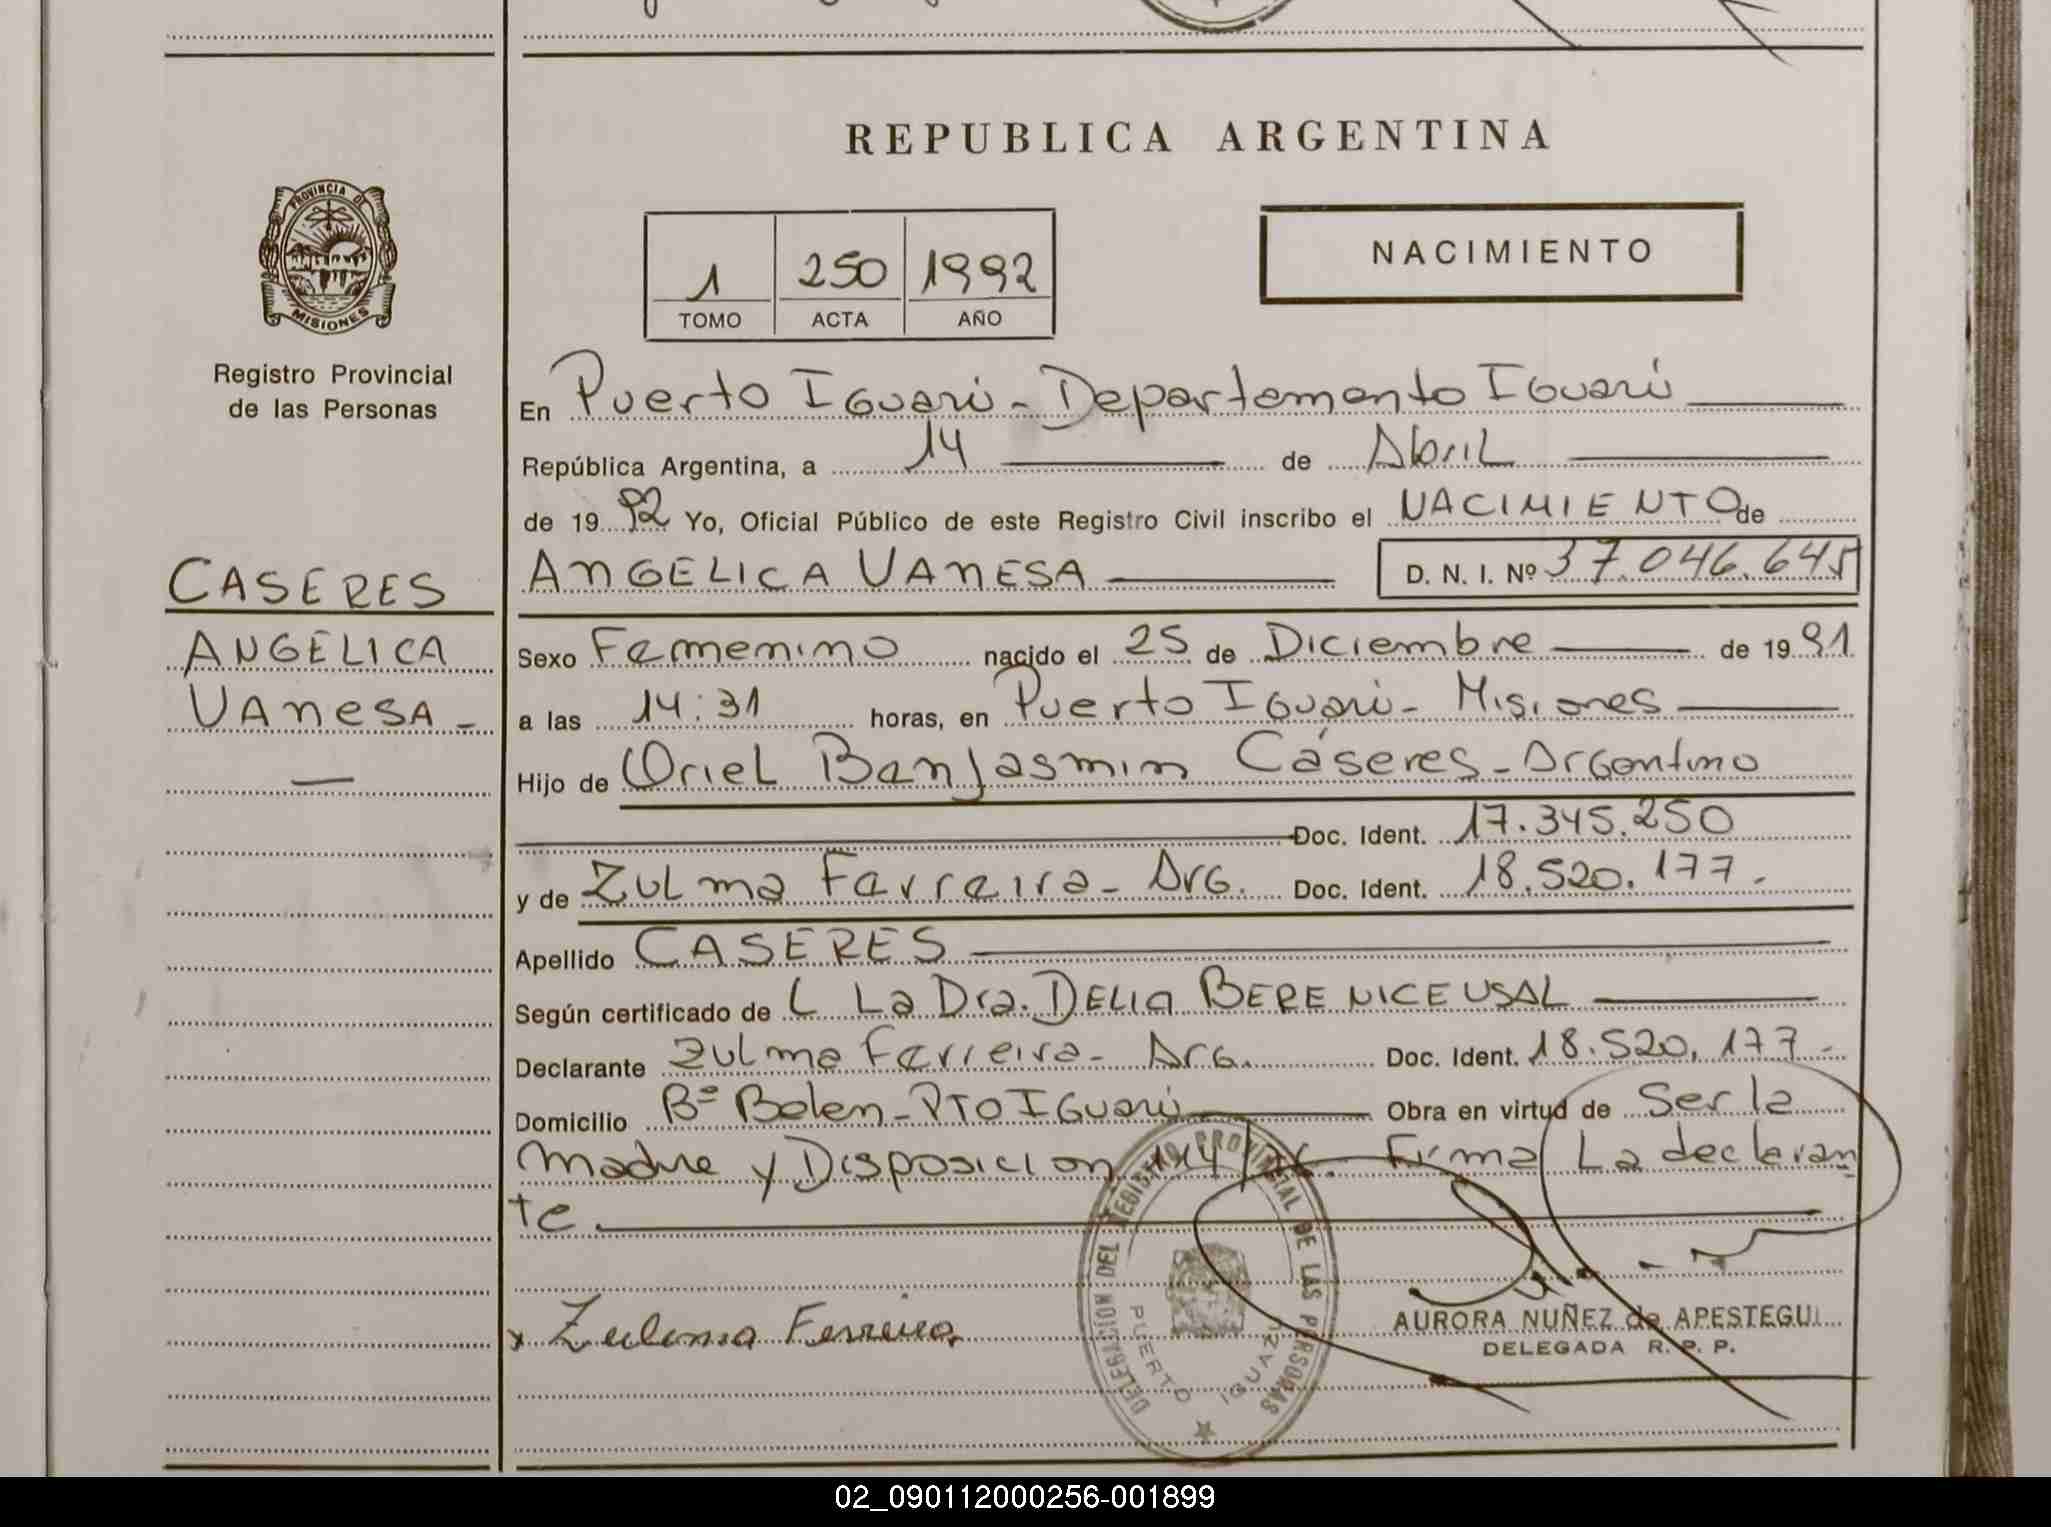 REPUBLICA ARGENTINA
PROVINCIA DE
MISIONES
Registro Provincial
de las Personas
1 250 1992
TOMO ACTA AÑO
NACIMIENTO
En Puerto Iguazú - Departamento Iguazú
República Argentina, a 14 de Abril
de 1992 Yo, Oficial Público de este Registro Civil inscribo el NACIMIENTO de
ANGELICA VANESA D. N. I. Nº 37.046.645
CASERES
ANGELICA
VANESA -
Sexo Femenino nacido el 25 de Diciembre de 1991
a las 14:31 horas, en Puerto Iguazú - Misiones
Hijo de Oriel Banjasmin Cáseres - Argentino
Doc. Ident. 17.345.250
y de Zulma Farreira - Arg. Doc. Ident. 18.520.177.
Apellido CASERES
Según certificado de L La Dra. DELIA BERENICE USAL
Declarante Zulma Farreira - Arg. Doc. Ident. 18.520.177 -
Domicilio Bº Belen - Pto Iguazú Obra en virtud de Ser la
Madre y Disposicion Firma La declaran
te.
x Zulema Ferreira
DELEGACION DEL REGISTRO PROVINCIAL DE LAS PERSONAS
PUERTO IGUAZU
AURORA NUÑEZ de APESTEGUI
DELEGADA R. P. P.
02_090112000256-001899